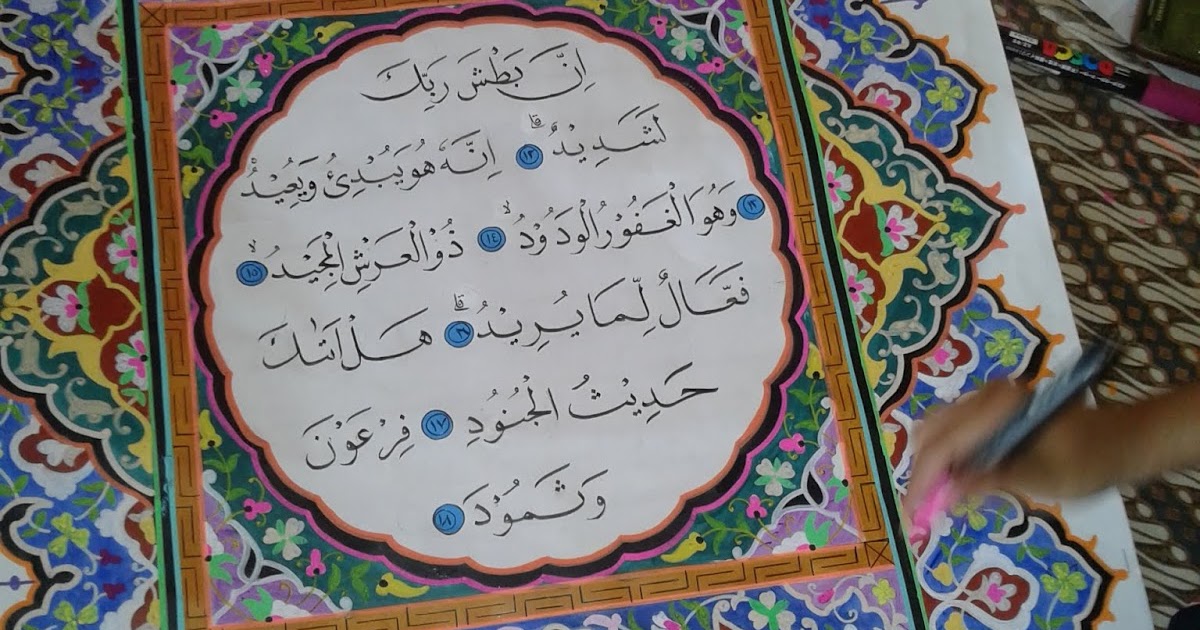 اِنَّ بَطْشَ رَبِّكَ
لَشَدِيْدٌ ۗ ١٢ اِنَّهٗ هُوَ يُبْدِئُ وَيُعِيْدُ
١٣ وَهُوَ الْغَفُوْرُ الْوَدُوْدُ ۙ ١٤ ذُو الْعَرْشِ الْمَجِيْدُ ۙ ١٥
فَعَّالٌ لِّمَا يُرِيْدُ ۗ ١٦ هَلْ اَتٰىكَ
حَدِيْثُ الْجُنُوْدِ ١٧ فِرْعَوْنَ
وَثَمُوْدَ ١٨
POSCA